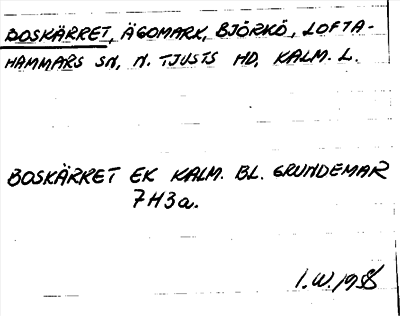 BOSKÄRRET, ÄGOMARK, BJÖRKÖ, LOFTA-
HAMMARS SN, N. TJUSTS HD, KALM. L.
BOSKÄRRET EK KALM. BL. GRUNDEMAR
7H3a.
I.W. 1958